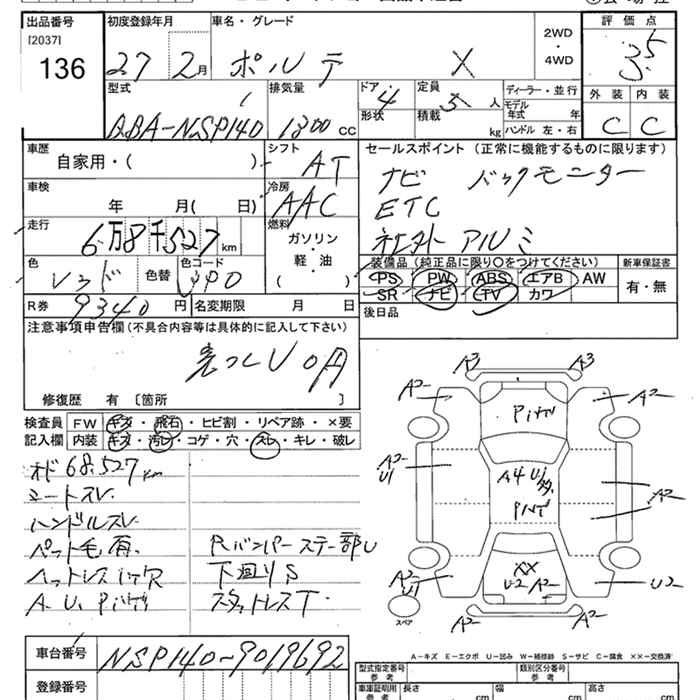 出品番号 初度登録年月 車名・グレード 2WD ・ 4WD 評価点
[2037]
136 27 2月 ポルテ X 3.5
型式 排気量 ドア 4 定員 5人 ディーラー・並行 外装 内装
ABA-NSP140 1300cc 形状 積載 kg モデル年式 年 C C
ハンドル 左・右
車歴 シフト AT セールスポイント(正常に機能するものに限ります)
自家用・( ) ナビ バックモニター
車検 冷房 AAC ETC
年 月( 日) 社外アルミ
走行 燃料
6万8千527km ガソリン・軽・油
色 レッド 色替 色コード 装備品(純正品に限り○をつけてください) 新車保証書
PS PW ABS エアB AW 有・無
SR ナビ TV カワ
R券 9340円 名変期限 月 日 後日品
注意事項申告欄(不具合内容等は具体的に記入して下さい)
修復歴 有〔箇所 〕
検査員記入欄 FW キズ・飛石・ヒビ割・リペア跡・×要
内装 キズ・汚レ・コゲ・穴・スレ・キレ・破レ
オド68.527km
シートスレ
ハンドルスレ
ペット毛有
ヘッドレスト
A.U.
Rバンパーステー部U
下廻りS
スタットレスT
A3 A3
A2 A2
A2 U1 A2
A2 U1 U2
A2 A2
XX U2 A2
スペア
A-キズ E-エクボ U-凹み W-補修跡 S-サビ C-腐食 XX-交換済
車台番号 NSP140-9019692
登録番号
型式指定番号 参考 類別区分番号 参考
車庫証明用 参考 長さ cm 幅 cm 高さ cm